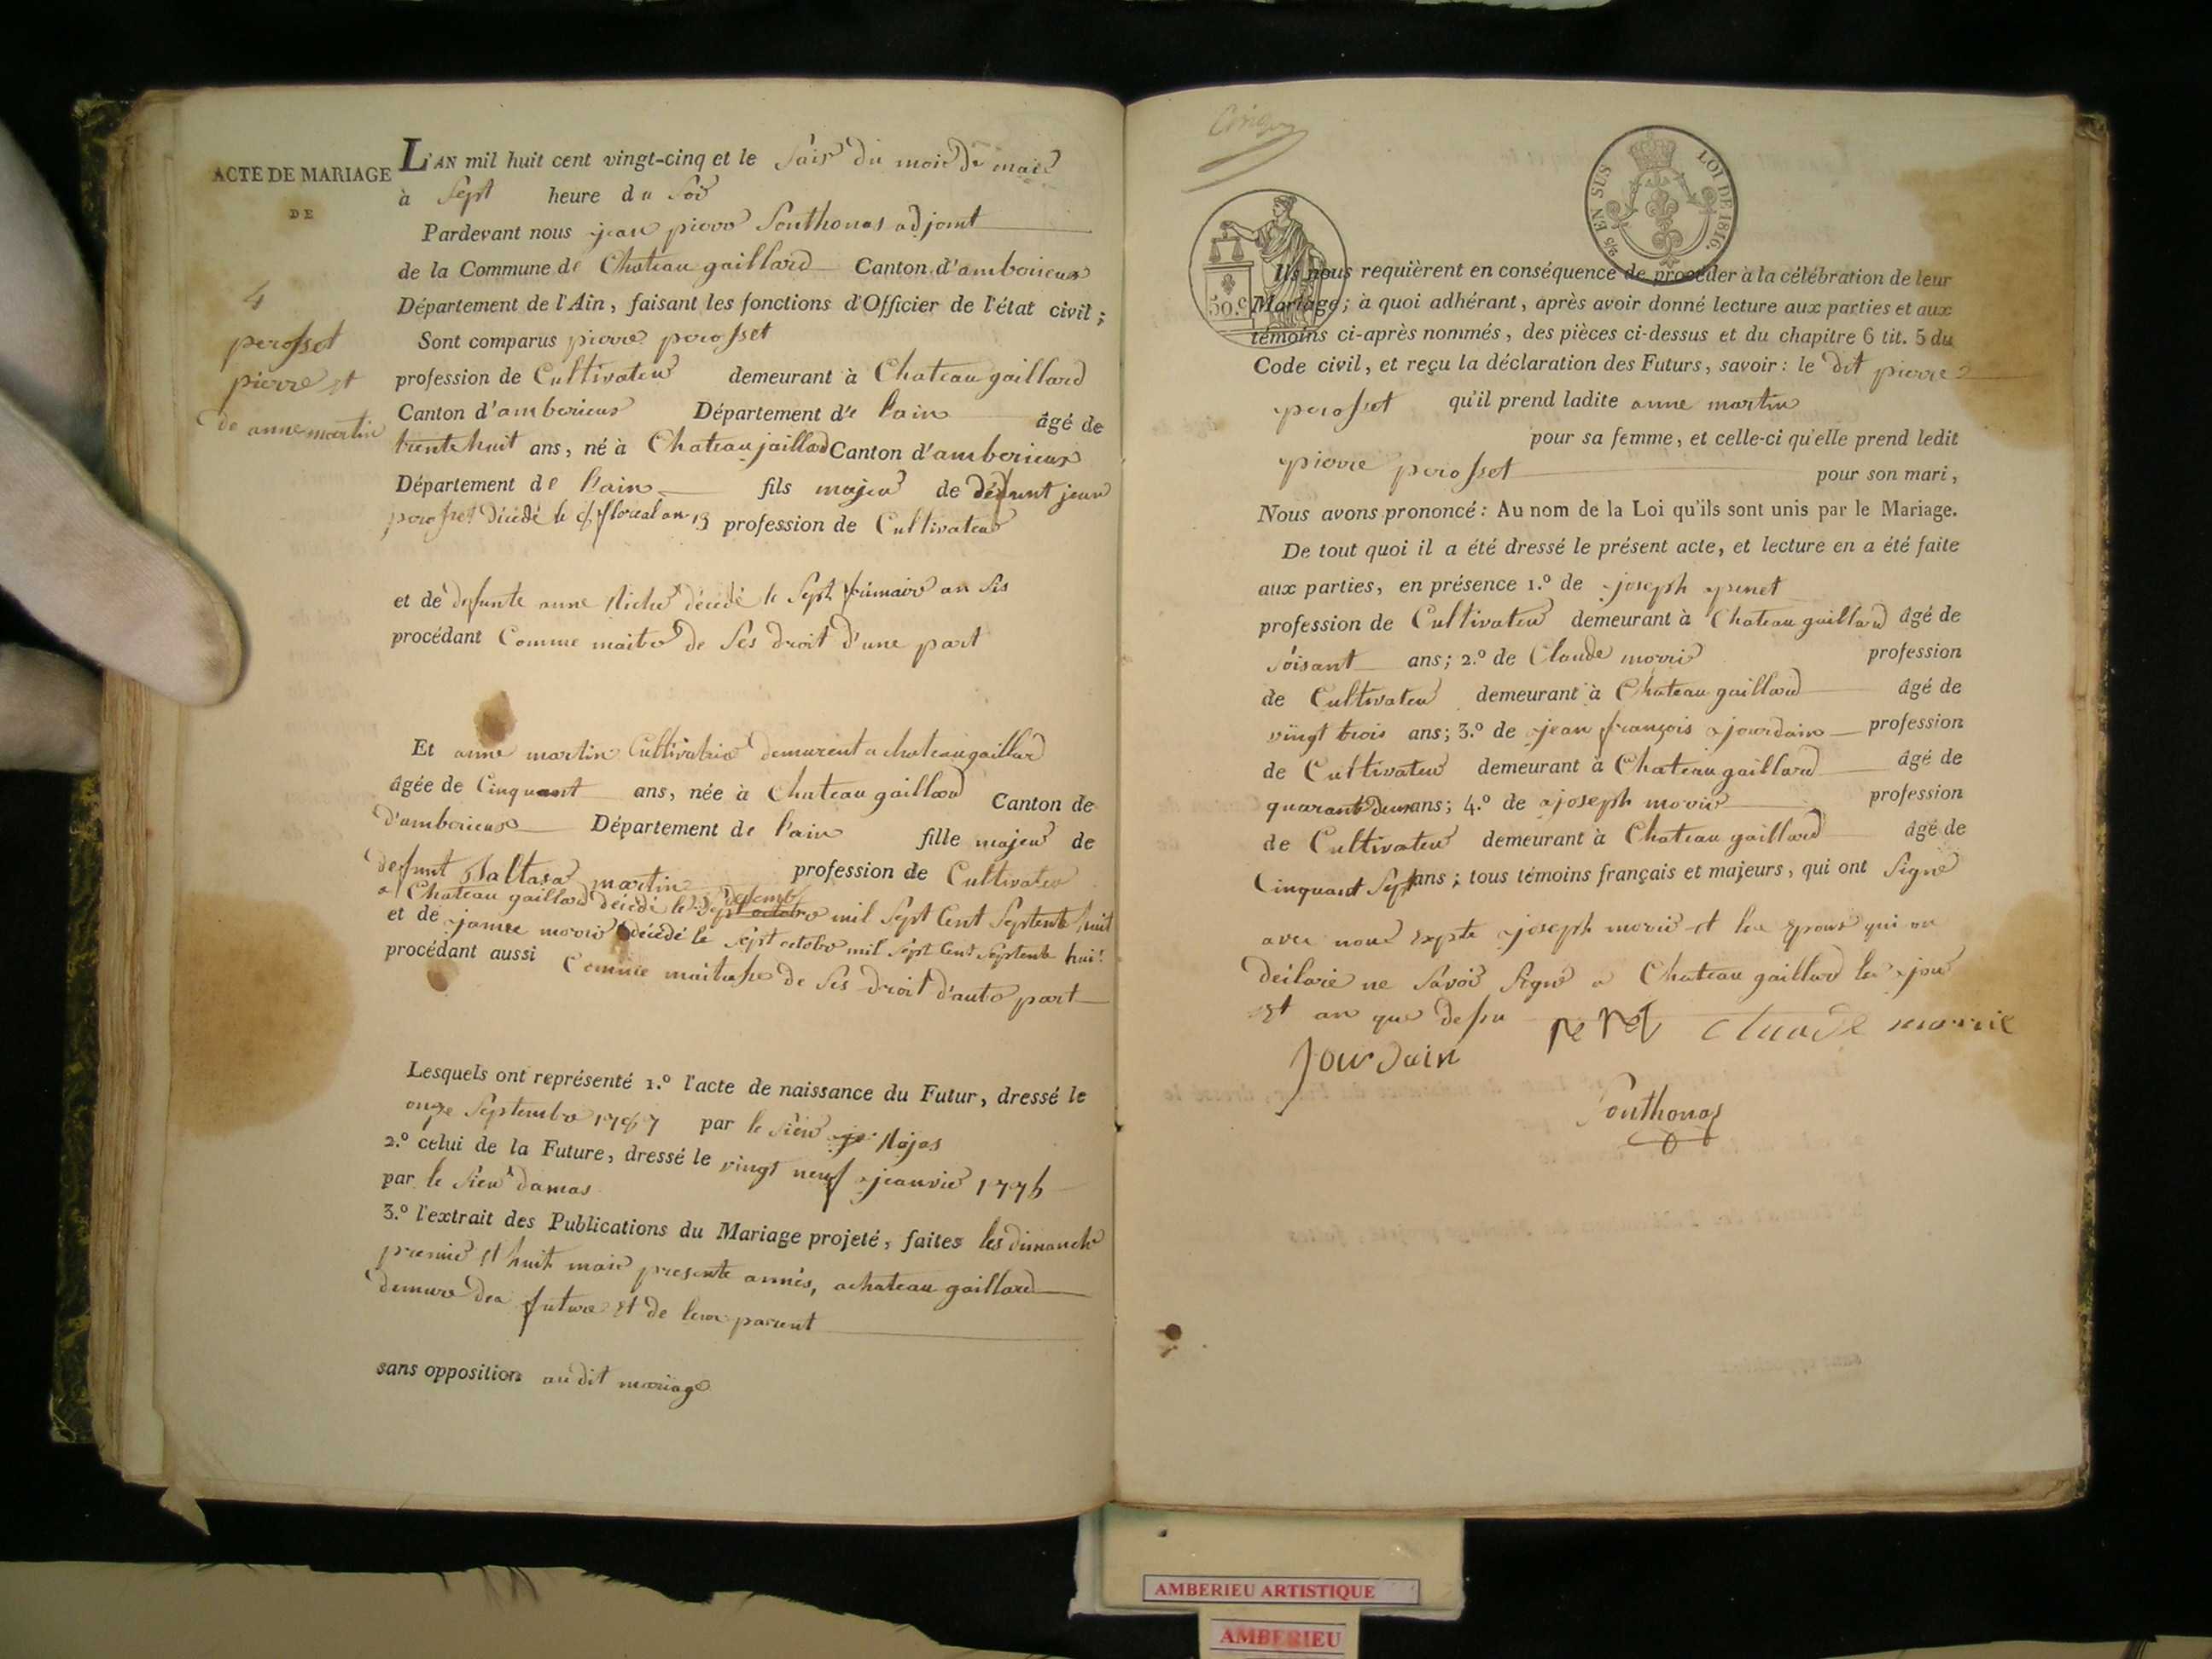 ACTE DE MARIAGE
DE
4
perosset
pierre et
de anne martin
L'AN mil huit cent vingt-cinq et le du mois de mais
à sept heure du soir
Pardevant nous jean pierre Ponthonas adjoint
de la Commune de Chateau gaillard Canton d'amberieux
Département de l'Ain, faisant les fonctions d'Officier de l'état civil;
Sont comparus pierre perosset
profession de Cultivateur demeurant à Chateau gaillard
Canton d'amberieux Département de l'ain âgé de
trente huit ans, né à Chateau jaillard Canton d'amberieux
Département de l'ain fils majeur de defunt jean
perosset décédé le floreal an 13 profession de Cultivateur
et de defunte anne décédé le sept frimaire an sis
procédant Comme maitre de ses droit d'une part
Et anne martin Cultivatrice demurent a chateau gaillard
âgée de Cinquant ans, née à Chateau gaillard Canton de
d'amberieux Département de l'ain fille majeur de
defunt Baltasar martin profession de Cultivateur
a Chateau gaillard décédé le sept octobre mil sept Cent septente huit
et de décédé le sept octobre mil sept Cent septente huit
procédant aussi Comme maitresse de ses droit d'autre part
Lesquels ont représenté 1.º l'acte de naissance du Futur, dressé le
onze septembre 1787 par le sieur
2.º celui de la Future, dressé le vingt neuf jeanvier 1775
par le sieur damas
3.º l'extrait des Publications du Mariage projeté, faites les dimanche
premier et huit mais presente année, a chateau gaillard
demure des future et de leur parent
sans opposition au dit mariage
50.c
25 EN SUS
LOI DE 1816.
Ils nous requièrent en conséquence de procéder à la célébration de leur
Mariage; à quoi adhérant, après avoir donné lecture aux parties et aux
témoins ci-après nommés, des pièces ci-dessus et du chapitre 6 tit. 5 du
Code civil, et reçu la déclaration des Futurs, savoir: le dit pierre
perosset qu'il prend ladite anne martin
pour sa femme, et celle-ci qu'elle prend ledit
pierre perosset pour son mari,
Nous avons prononcé: Au nom de la Loi qu'ils sont unis par le Mariage.
De tout quoi il a été dressé le présent acte, et lecture en a été faite
aux parties, en présence 1.º de joseph penet
profession de Cultivateur demeurant à Chateau gaillard âgé de
soisant ans; 2.º de Claude morrie profession
de Cultivateur demeurant à Chateau gaillard âgé de
vingt trois ans; 3.º de jean françois jourdain profession
de Cultivateur demeurant à Chateau gaillard âgé de
quarant deux ans; 4.º de joseph morrie profession
de Cultivateur demeurant à Chateau gaillard âgé de
Cinquant sept ans; tous témoins français et majeurs, qui ont signé
avec nous expte joseph morrie et les epoux qui on
déclaré ne savoir signé a Chateau gaillard les jour
et an que dessu
penet Claude morrie
Jourdain
Ponthonas
AMBERIEU ARTISTIQUE
AMBERIEU